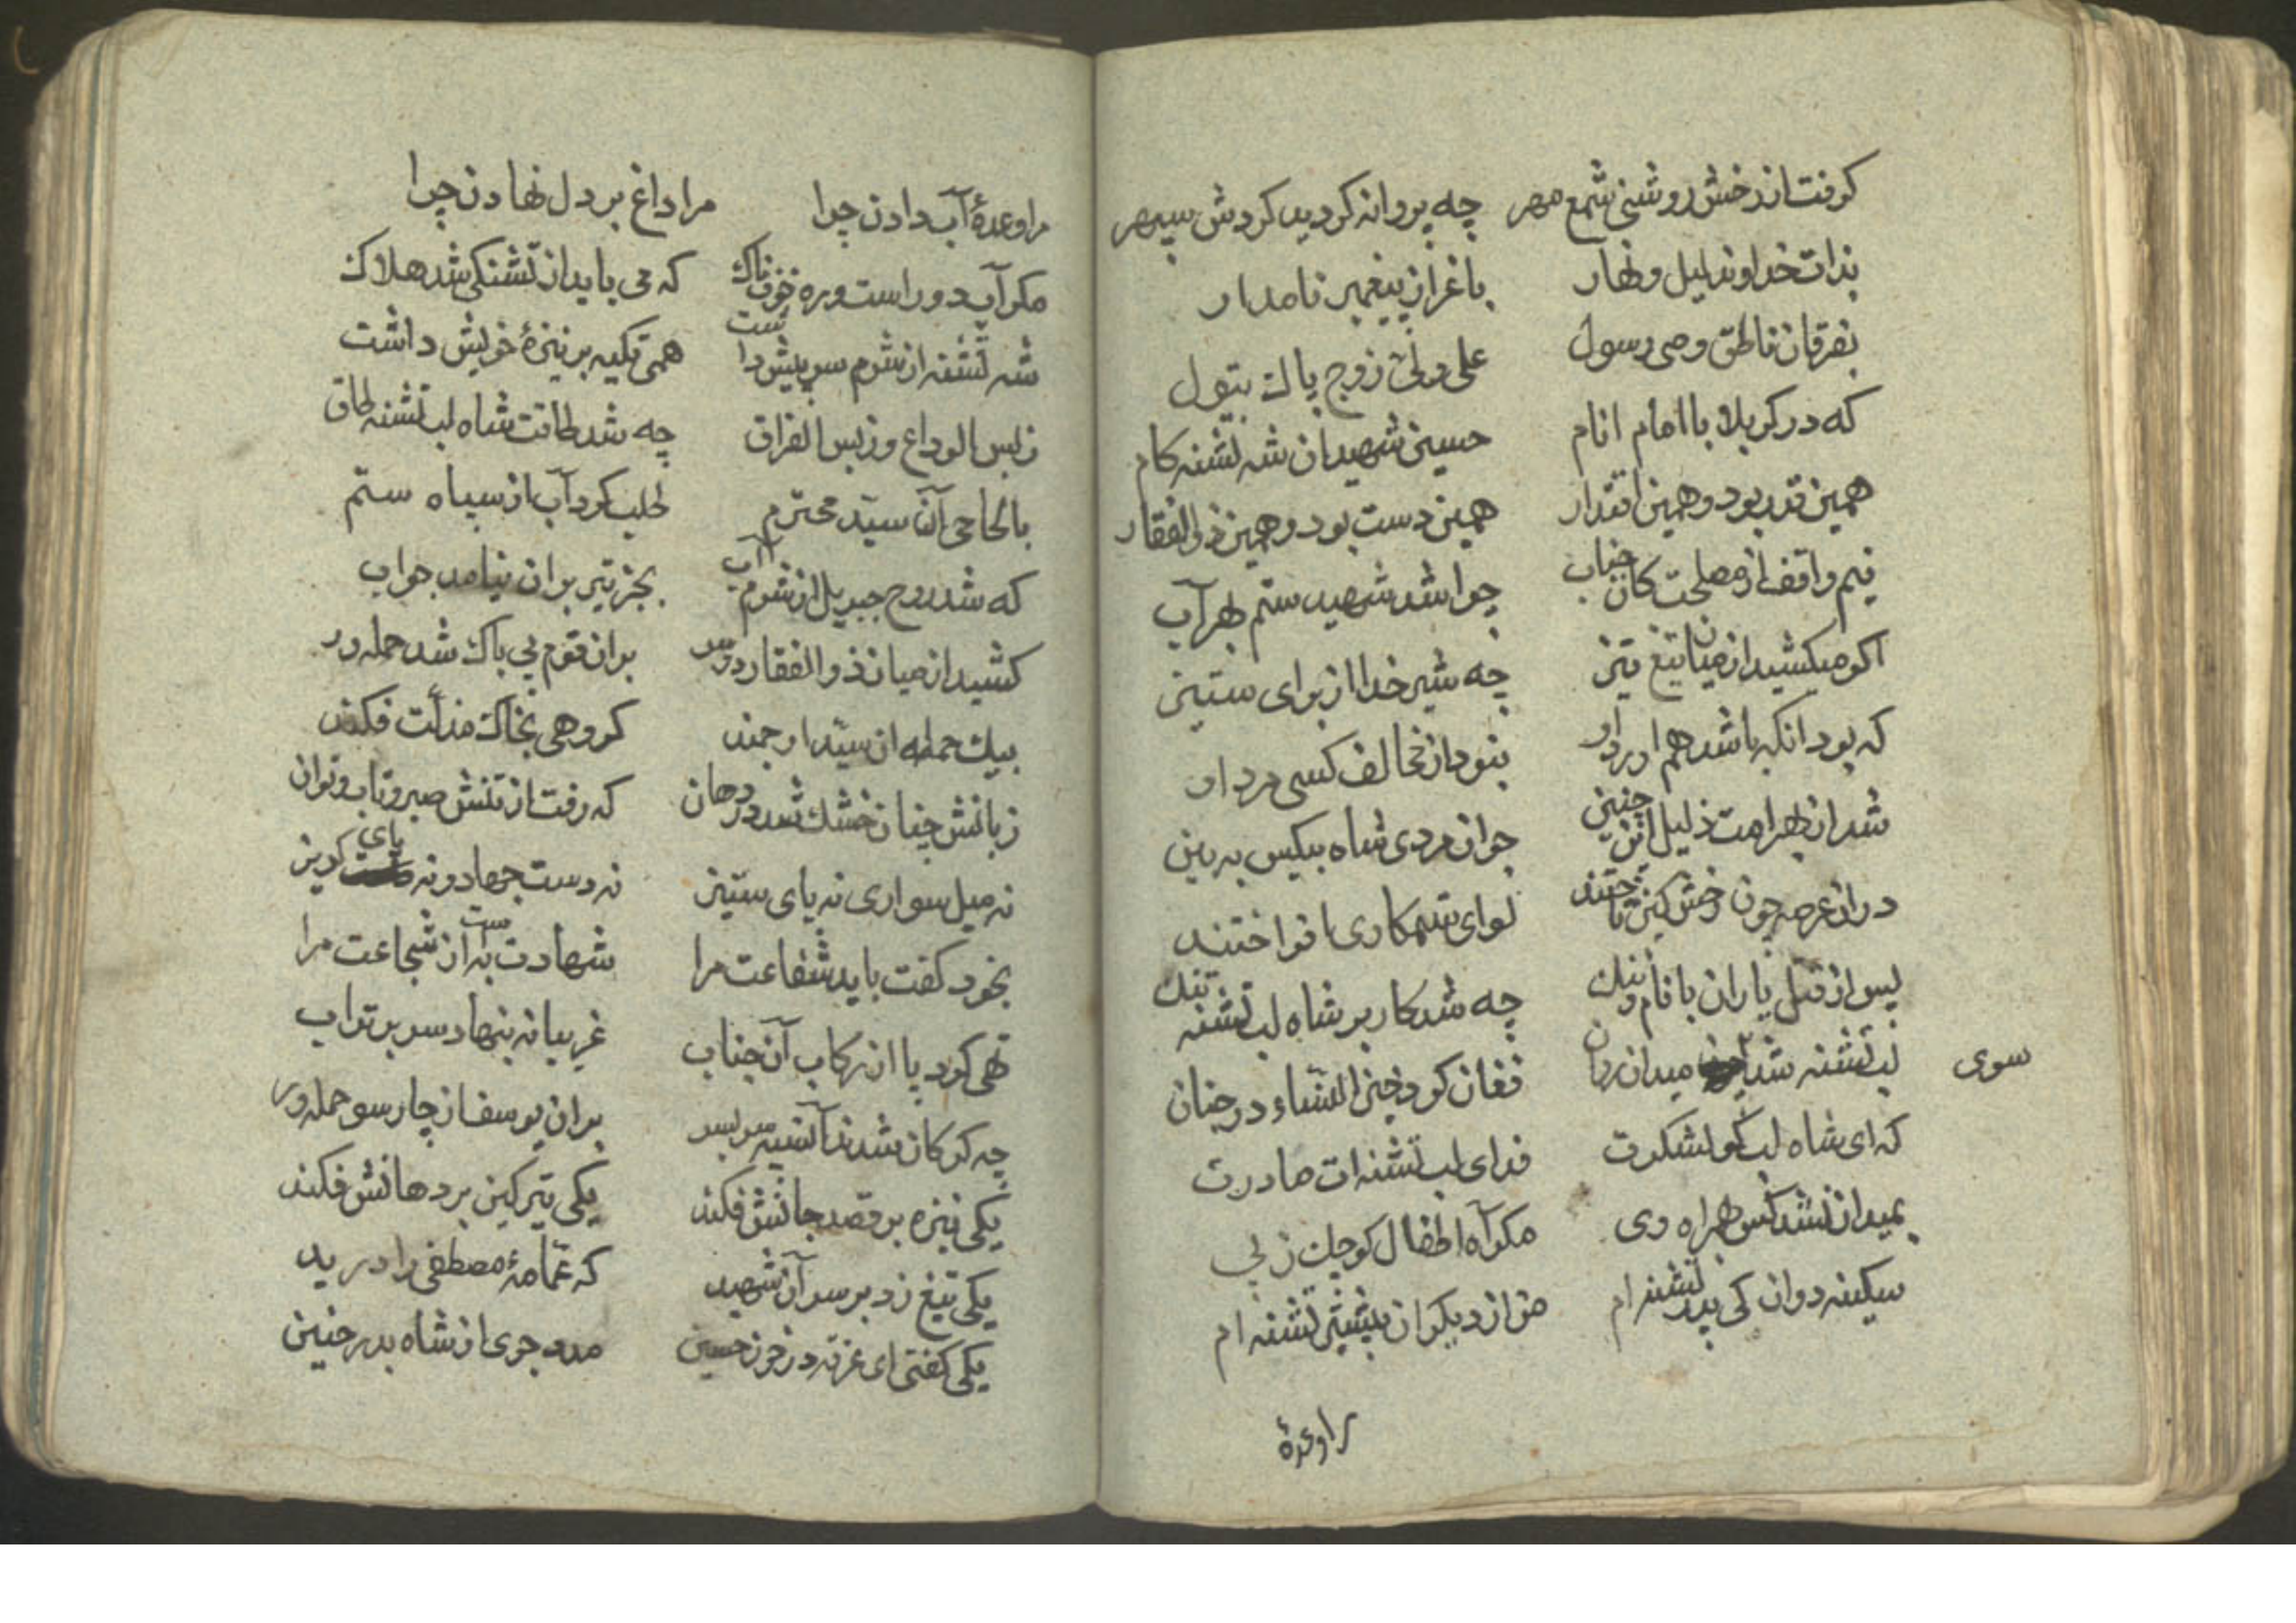 گرفت از رخش روشنی شمع مهر چه پروانه گردید گردش سپهر
بذات خداوند لیل و نهار باغراز پیغمبر نامدار
بفرقان ناطق وصی رسول علی ولی زوج پاک بتول
که در کربلا با امام انام حسین شهیدان شه تشنه کام
همین قدر بود و همین اقتدار همین دست بود و همین ذوالفقار
نیم واقف از مصلحت کان جناب چرا شد شهید ستم بهر آب
اگر میکشید از میان تیغ تیز چه شیر خدا از برای ستیز
که بود انکه باشد هم اورد او بنود از مخالف کسی مرد او
شد از بهر امت ذلیل چنین جوانمردی شاه بیکس به بین
دران عرصه چون رخش کین تاختند لوای ستمکاری افراختند
پس از قتل یاران با نام و ننک چه شد کار بر شاه لب تشنه تنک
لب تشنه شد سوی میدان روان فغان کرد خیر النساء در جنان
که ای شاه لب کو لشکرت فدای لب تشنه ات مادرت
بمیدان نشد کس همراه وی مکر آه اطفال کوچک ز پی
سکینه دوان کی پدر تشنه ام من از دیکران بیشتر تشنه ام
را وعدهٔ
مرا وعدهٔ آب دادن چرا مرا داغ بر دل نهادن چرا
مکر آب دور است و ره خوفناک که می باید از تشنکی شد هلاک
شه تشنه از شرم سر پیش داشت همی تکیه بر نیزهٔ خویش داشت
زبس الوداع و زبس الفراق چه شد طاقت شاه لب تشنه طاق
بالحاحی آن سید محترم طلب کرد آب از سپاه ستم
که شد روح جبریل از شرم آب بجز تیر بران نیامد جواب
کشید از میان ذوالفقار دو سر بران قوم بی باک شد حمله ور
بیک حمله ان سید ارجمند کروهی بخاک مذلت فکند
زبانش چنان خشک شد در دهان که رفت از تنش صبر و تاب و توان
نه میل سواری نه پای ستیز نه دست جهاد و نه پای کریز
بخود کفت باید شفاعت مرا شهادت به است از شجاعت مرا
تهی کرد پا از رکاب آن جناب غریبانه بنهاد سر بر تراب
چه کرکان شدند سر بسر بران یوسف از چار سو حمله ور
یکی نیزه بر قصد جانش فکند یکی تیر کین بر دهانش فکند
یکی تیغ زد بر سر آن شهید که عمامهٔ مصطفی را درید
یکی کفتی ای غرقه در خون حسین مدد جوی از شاه بدر حنین